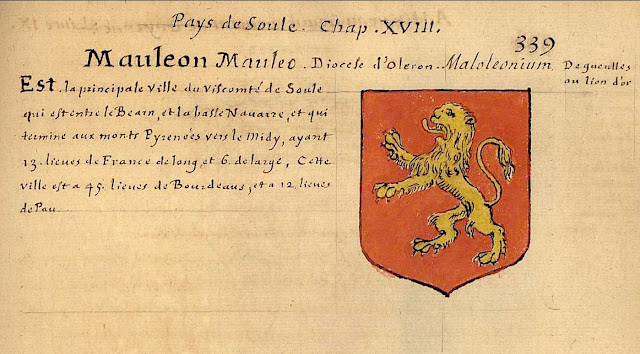 Pays de Soule. Chap. XVIII.
339
Mauleon Mauleo. Diocese d'Oleron. Maloleonium. De gueulles
au lion d'or
Est la principale ville du viscomté de Soule
qui est entre le Bearn, et la basse Navarre, et qui
termine aux monts Pyrenées vers le Midy, ayant
13. lieues de France de long, et 6. de large, Cette
ville est a 45. lieues de Bourdeaus, et a 12. lieues
de Pau